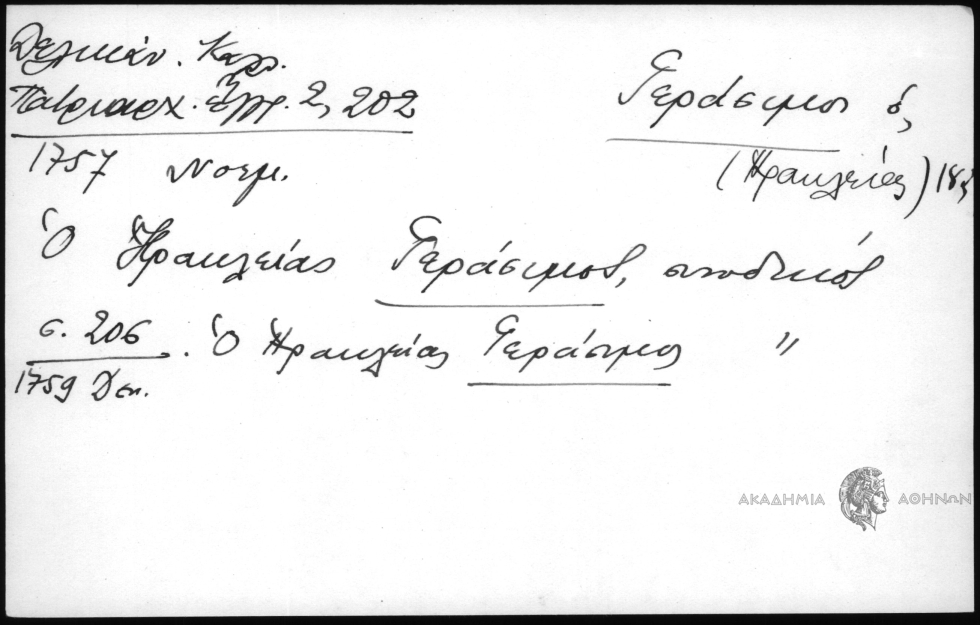 Δελικάν. Καλλ.
Πατριαρχ. Ἔγγρ. 2, 202
Γεράσιμοι
(Ἡρακλείας) 18ς
1757 Νοεμ.
Ὁ Ἡρακλείας Γεράσιμος, συνοδικός
σ. 206
Ὁ Ἡρακλείας Γεράσιμος "
1759 Δεκ.
ΑΚΑΔΗΜΙΑ ΑΘΗΝΩΝ